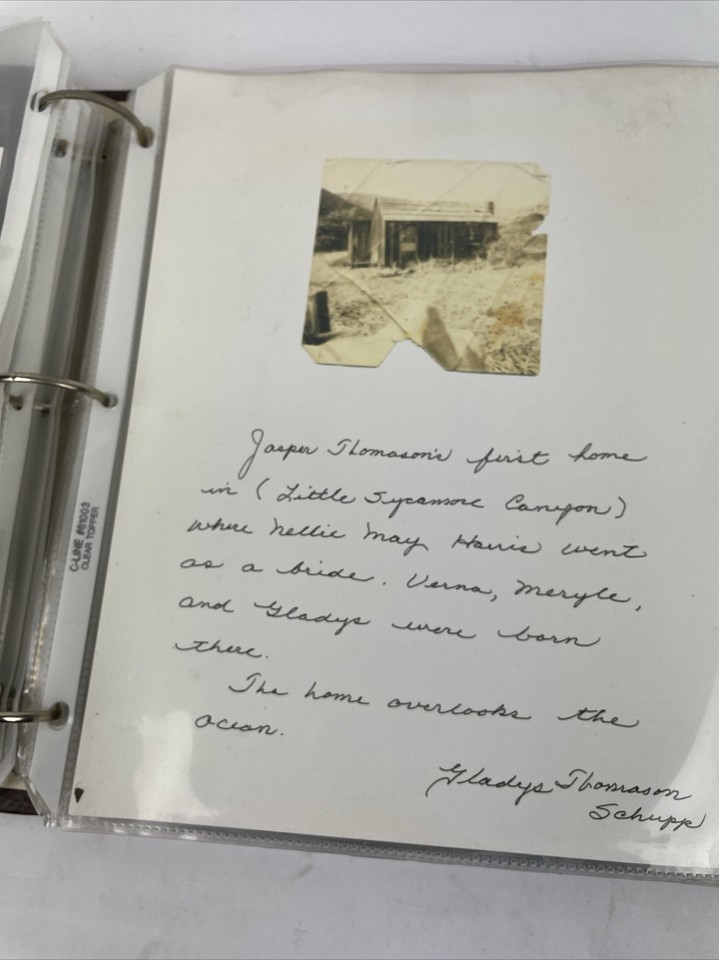 Jasper Thomason's first home
in (Little Sycamore Canyon)
where Nellie May Harris went
as a bride. Verna, Meryle,
and Gladys were born
there.
The home overlooks the
ocean.
Gladys Thomason
Schupp
C-LINE #61003
CLEAR TOPPER